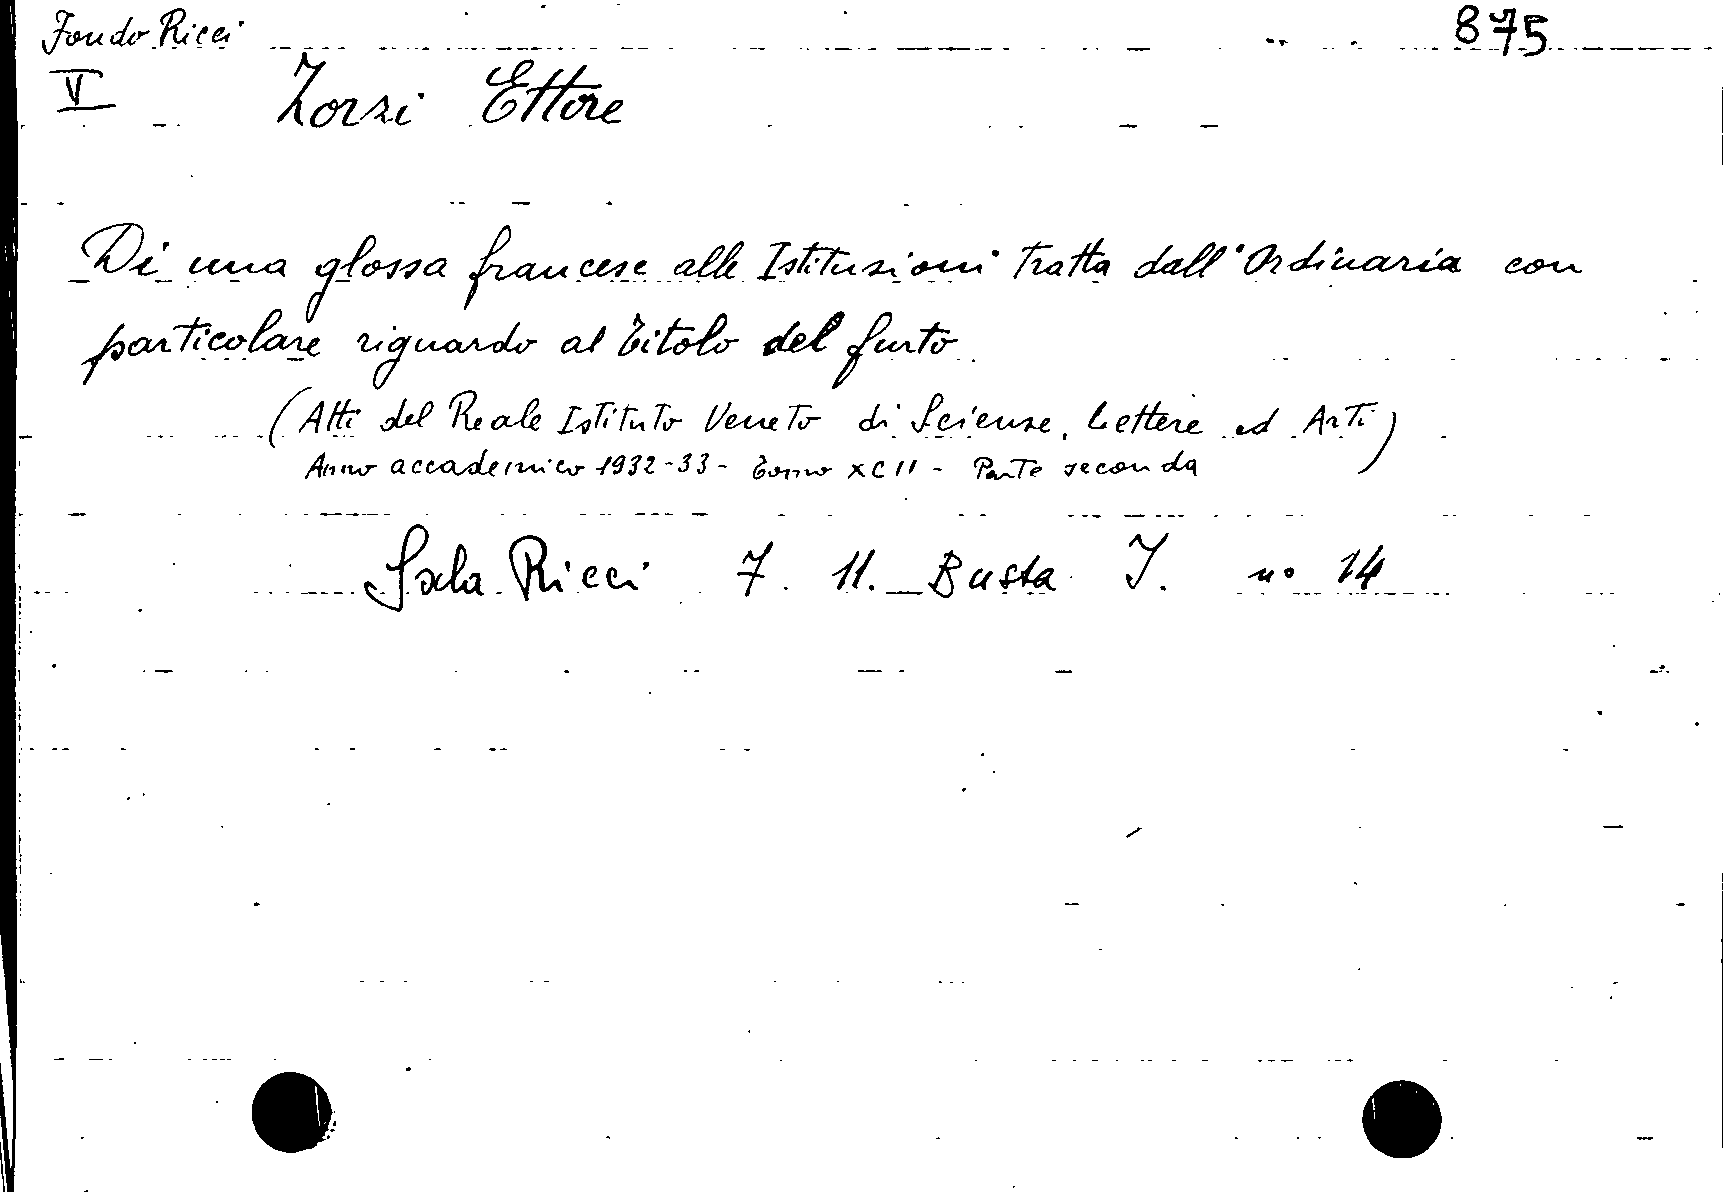 Fondo Ricci 875
V Zorzi Ettore
Di una glossa francese alle Istituzioni tratta dall'Ordinaria con
particolare riguardo al titolo del furto
(Atti del Reale Istituto Veneto di Scienze, Lettere ed Arti)
Anno accademico 1932-33 - Tomo XCII - Parte seconda
Sala Ricci 7. 11. Busta I. no 14